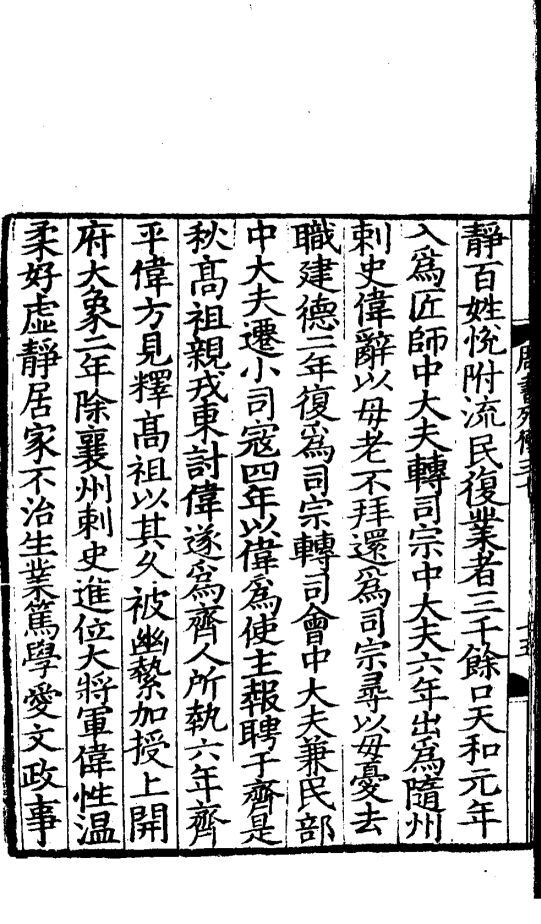 靜百姓悅附流民復業者三千餘口天和元年
入爲匠師中大夫轉司宗中大夫六年出爲隨州
刺史偉辭以母老不拜還爲司宗尋以母憂去
職建德二年復爲司宗轉司會中大夫兼民部
中大夫遷小司寇四年以偉爲使主報聘于齊是
秋高祖親戎東討偉遂爲齊人所執六年齊
平偉方見釋高祖以其久被幽縶加授上開
府大象二年除襄州刺史進位大將軍偉性溫
柔好虛靜居家不治生業篤學愛文政事